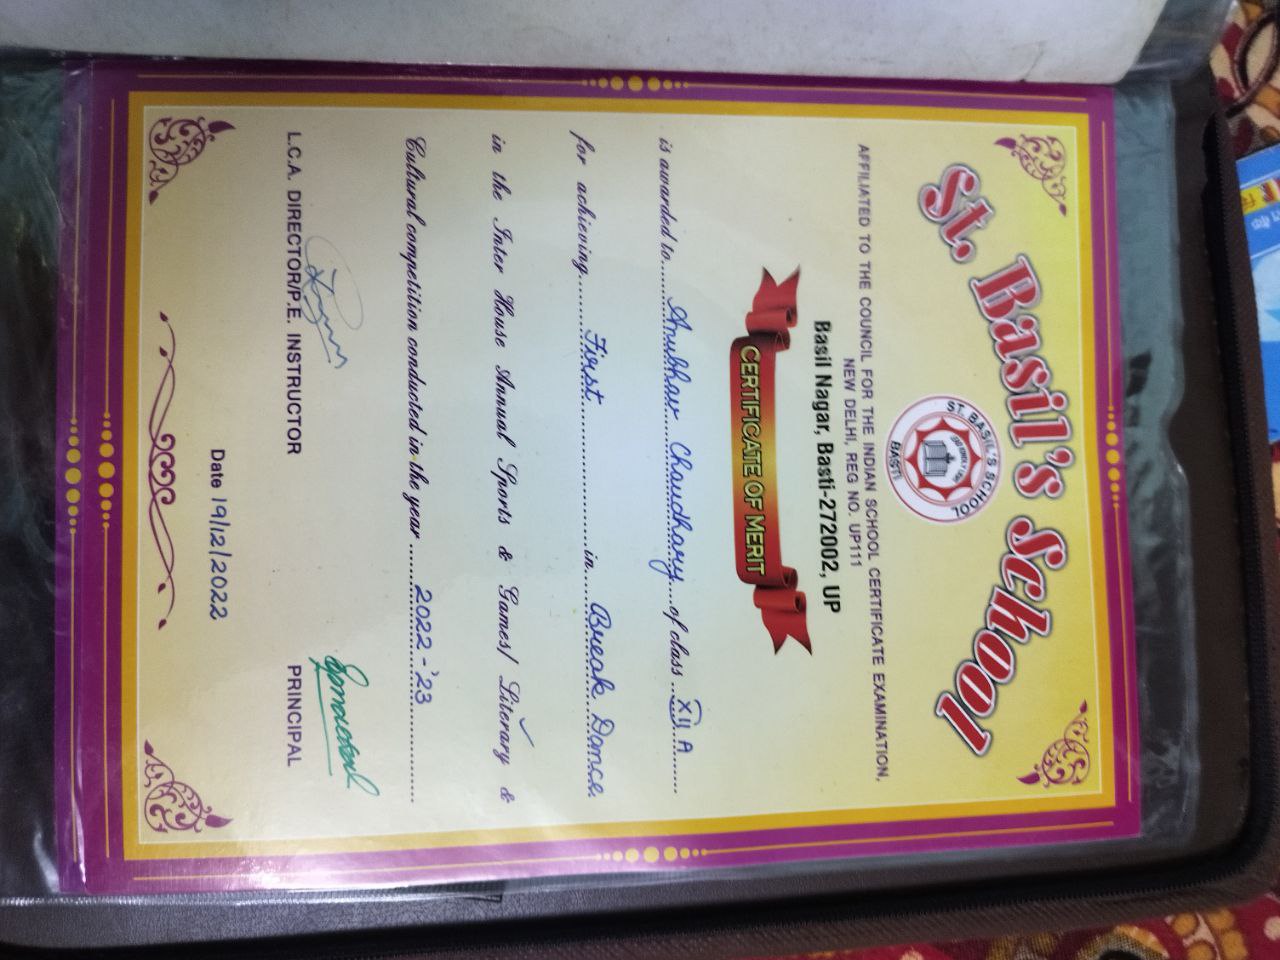 St. Basil's School
ST. BASIL'S SCHOOL
BASTI
AFFILIATED TO THE COUNCIL FOR THE INDIAN SCHOOL CERTIFICATE EXAMINATION,
NEW DELHI, REG NO. UP111
Basil Nagar, Basti-272002, UP
CERTIFICATE OF MERIT
is awarded to......Anubhav Chaudhary....of class...XII A......
for achieving........First...................in.....Break Dance.
in the Inter House Annual Sports & Games/ Literary &
Cultural competition conducted in the year ......2022-'23...............
L.C.A. DIRECTOR/P.E. INSTRUCTOR
PRINCIPAL
Date 19/12/2022